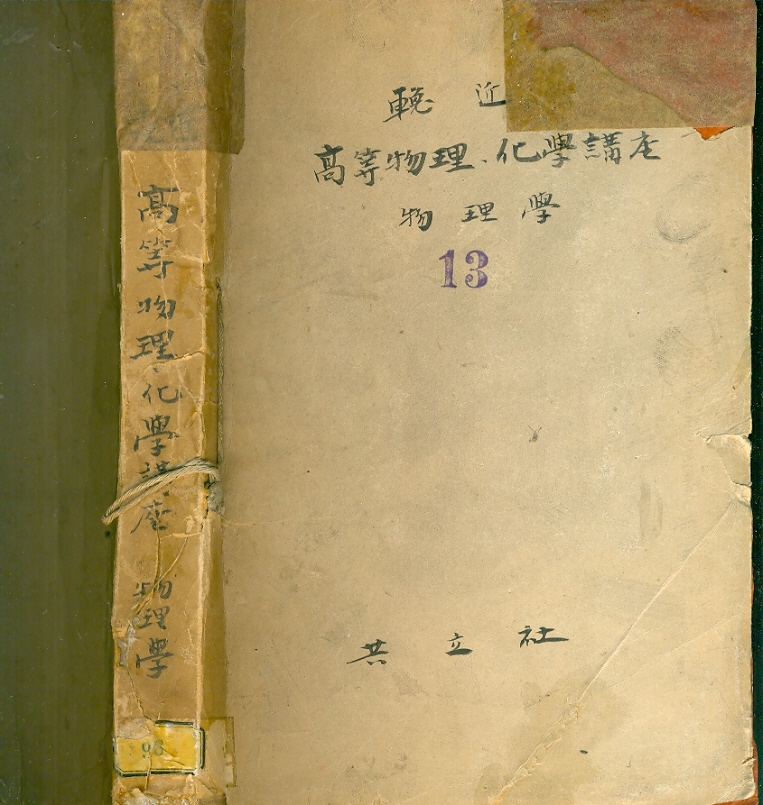 輓近
高等物理、化學講座
物理學
13
共立社
高等物理、化學講座 物理學